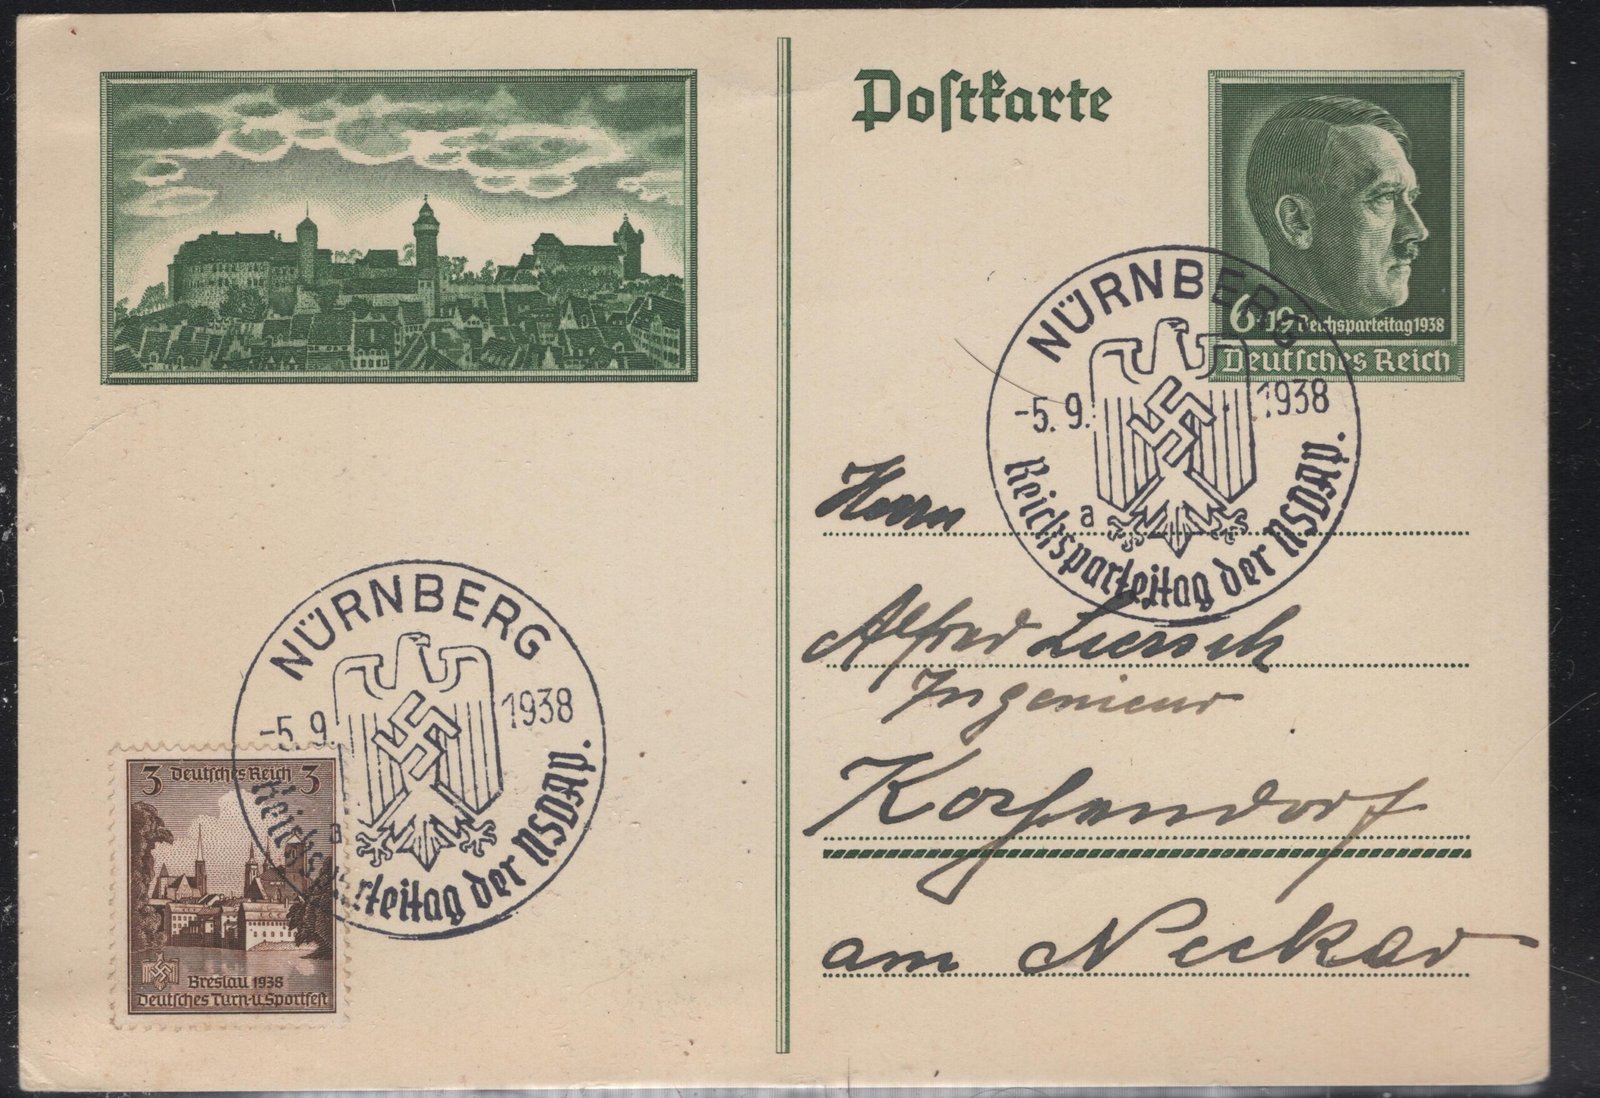 Postkarte
6+19 Reichsparteitag1938
Deutsches Reich
NÜRNBERG
-5.9. 1938
a
Reichsparteitag der NSDAP.
Herrn
Alfred
Ingenieur
Kochendorf
am Neckar
NÜRNBERG
-5.9. 1938
a
Reichsparteitag der NSDAP.
3 Deutsches Reich 3
Breslau 1938
Deutsches Turn-u.Sportfest